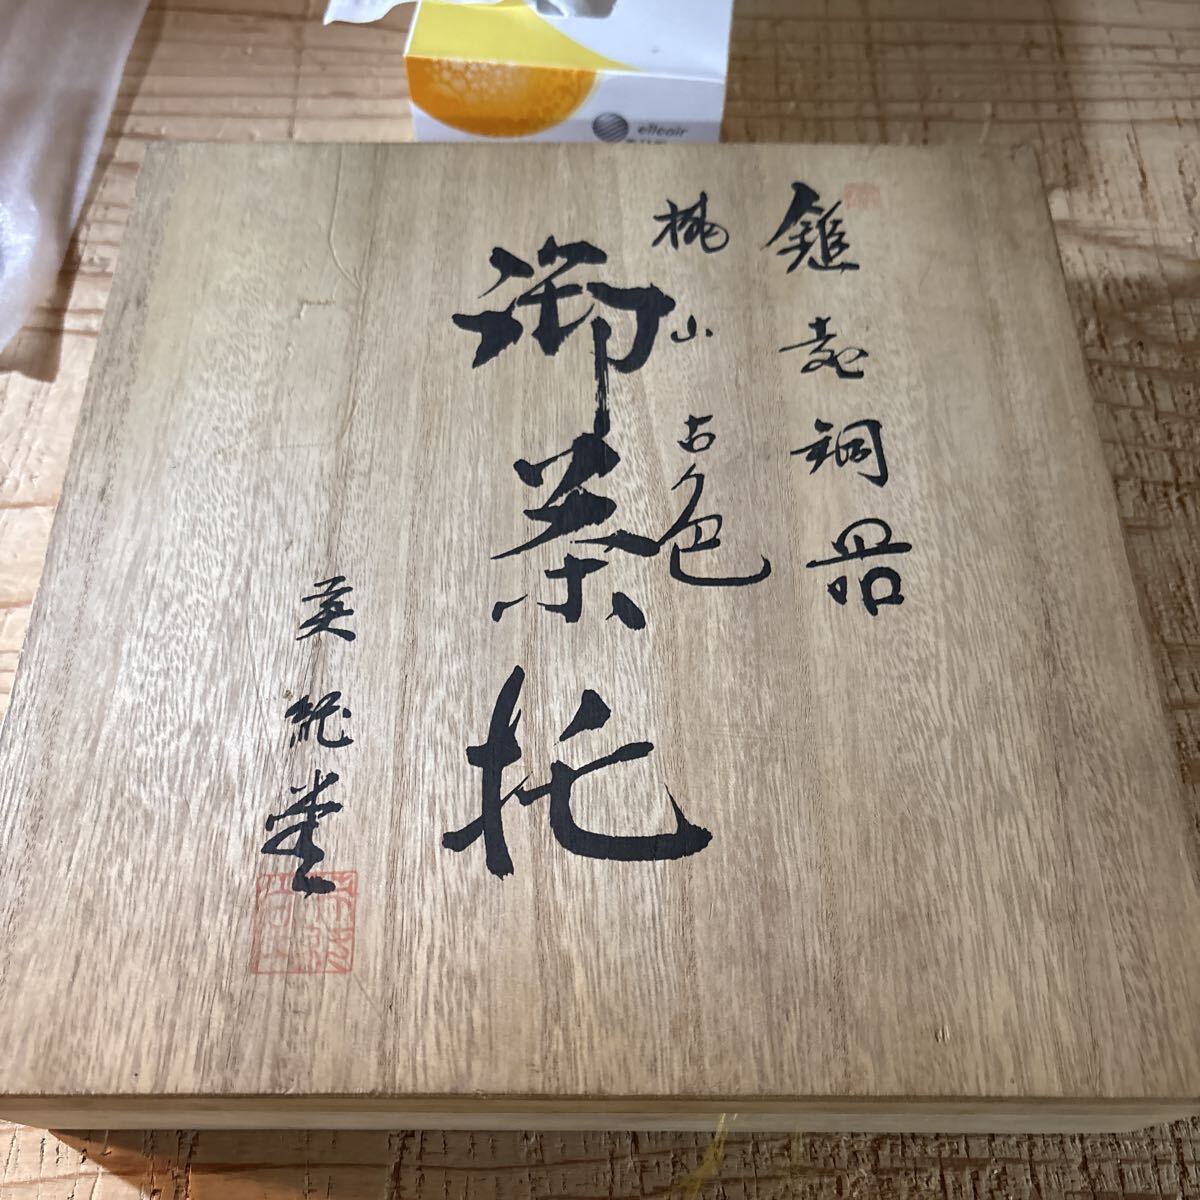 鎚起銅器
桃山古色
御茶托
英紀堂
elleair